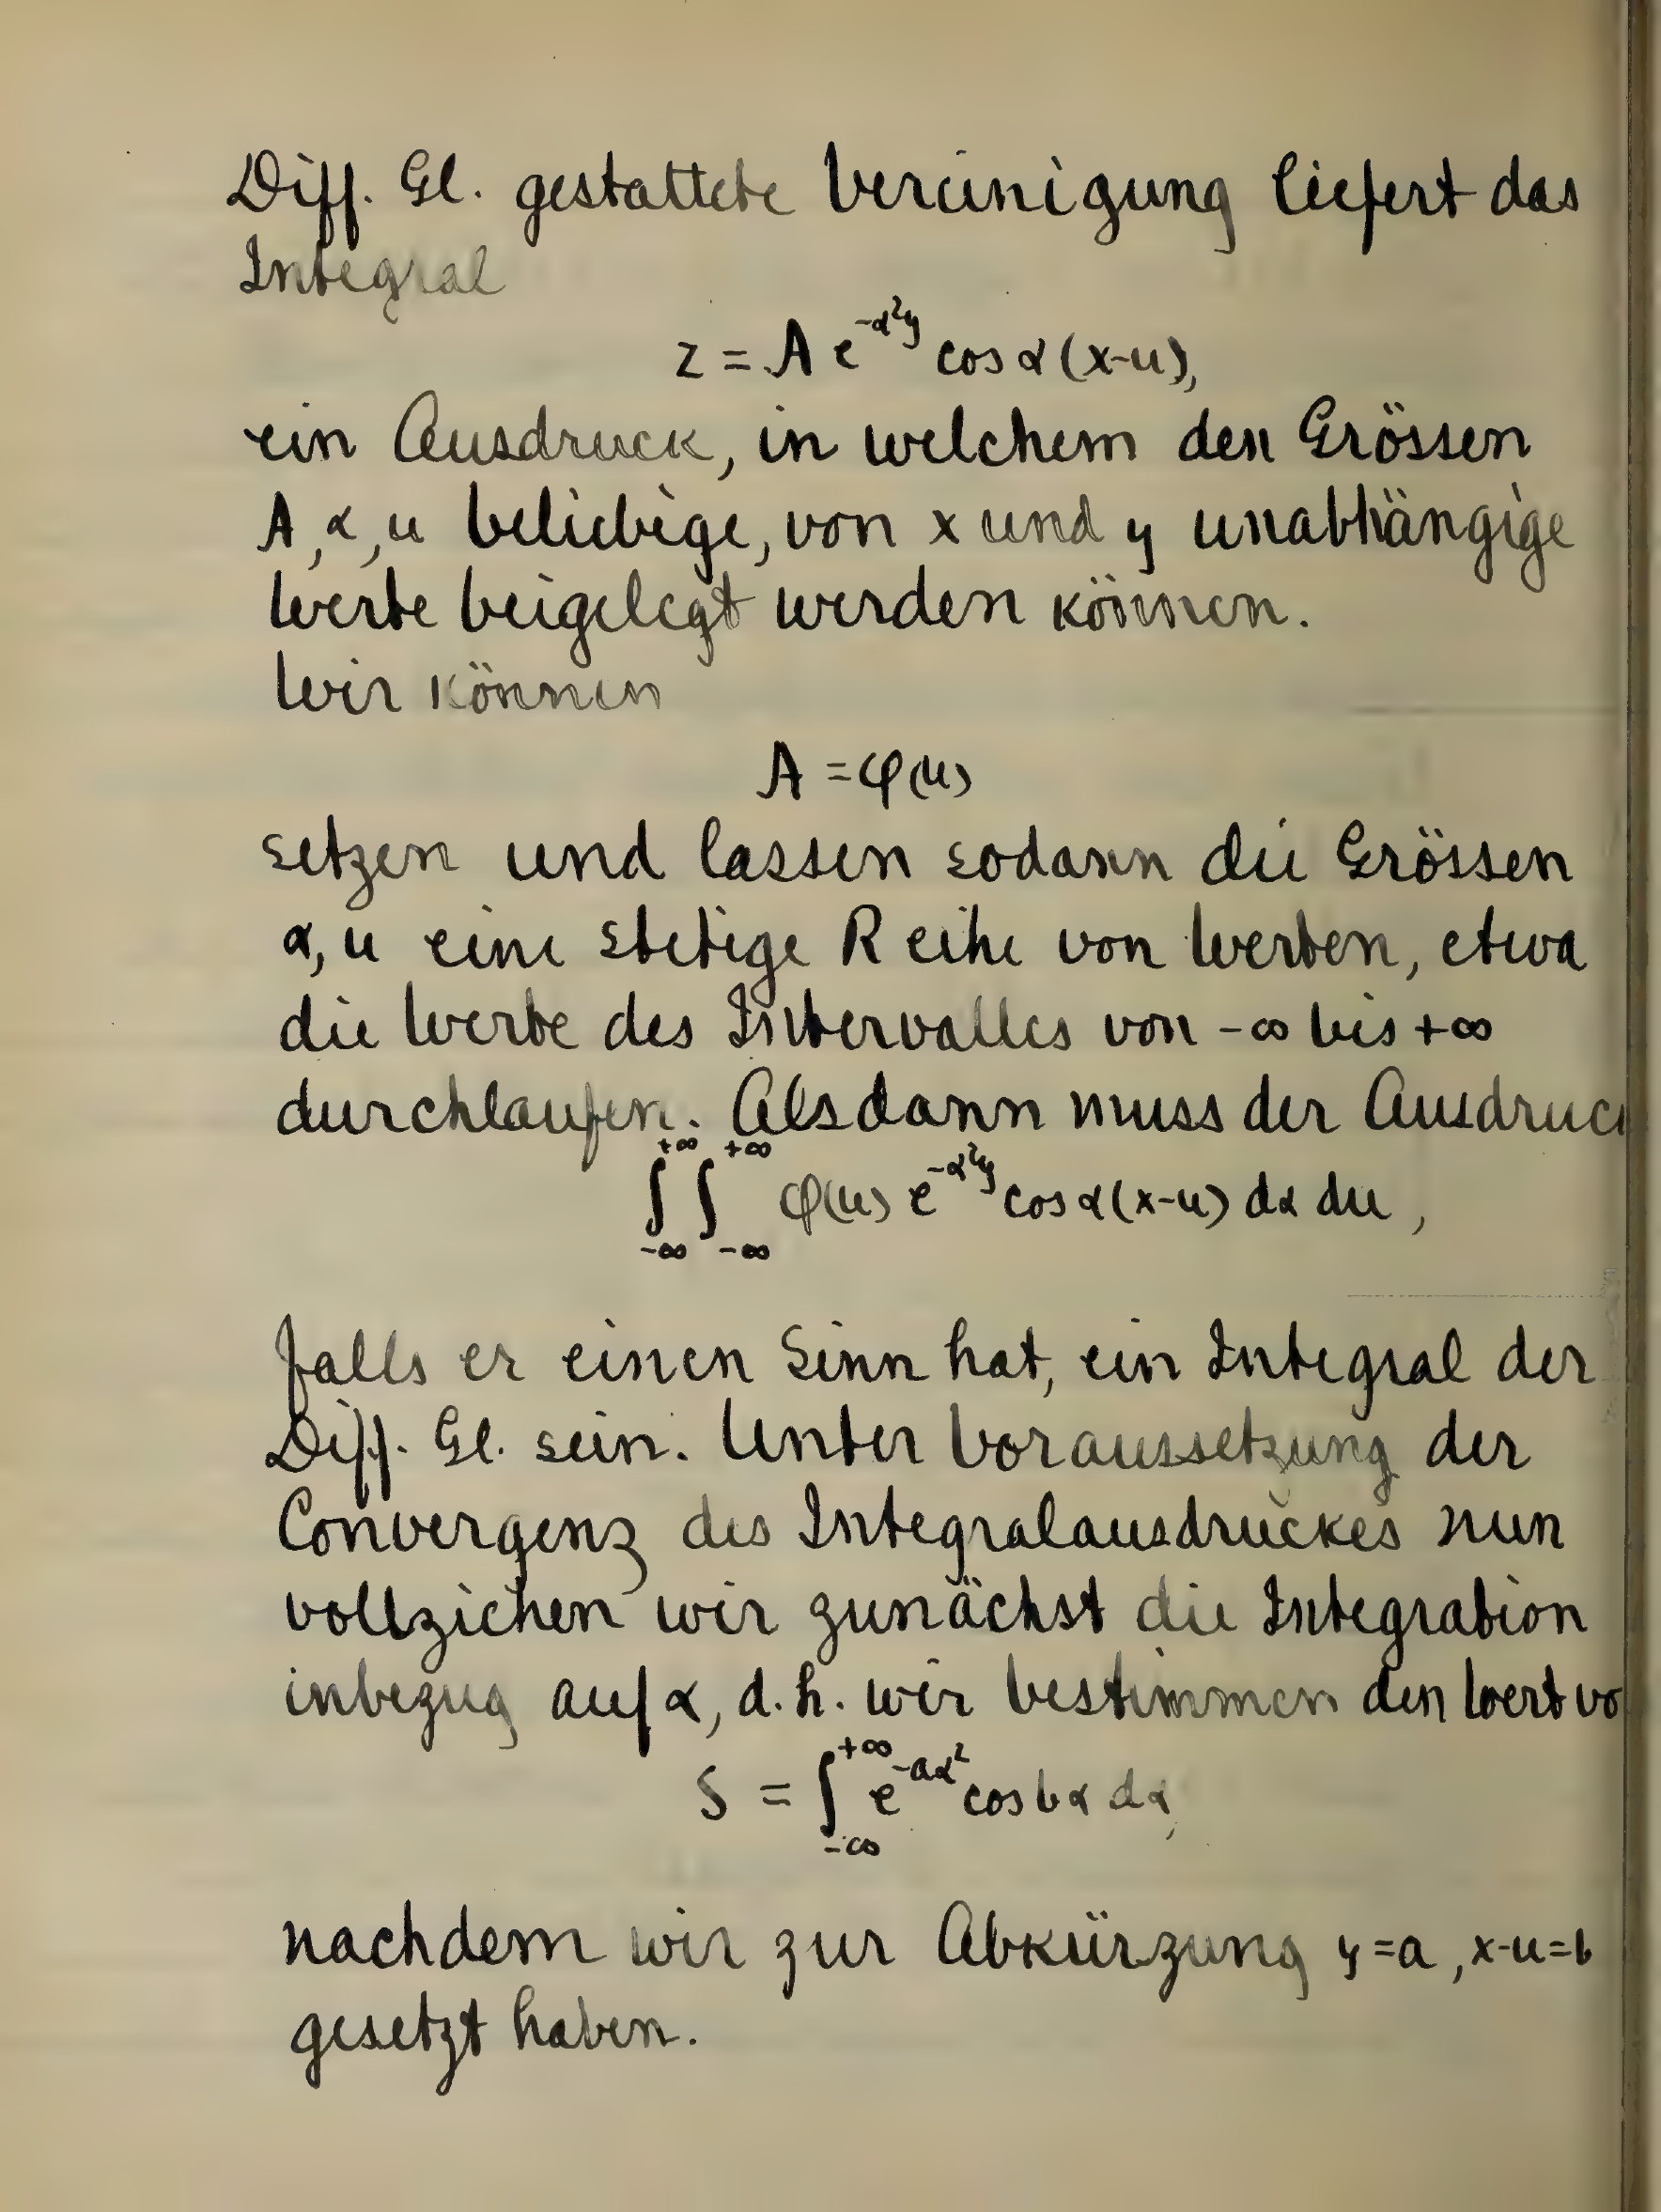 Diff. Gl. gestattete Vereinigung liefert das
Integral
z = A e^{-α²y} cos α (x-u),
ein Ausdruck, in welchem den Grössen
A, α, u beliebige, von x und y unabhängige
Werte beigelegt werden können.
Wir können
A = φ(u)
setzen und lassen sodann die Grössen
α, u eine stetige Reihe von Werten, etwa
die Werte des Intervalles von -∞ bis +∞
durchlaufen. Alsdann muss der Ausdruck
∫_{-∞}^{+∞} ∫_{-∞}^{+∞} φ(u) e^{-α²y} cos α (x-u) dα du,
falls er einen Sinn hat, ein Integral der
Diff. Gl. sein. Unter Voraussetzung der
Convergenz des Integralausdruckes nun
vollziehen wir zunächst die Integration
inbezug auf α, d.h. wir bestimmen den Wert vo
S = ∫_{-∞}^{+∞} e^{-aα²} cos bα dα,
nachdem wir zur Abkürzung y=a, x-u=b
gesetzt haben.